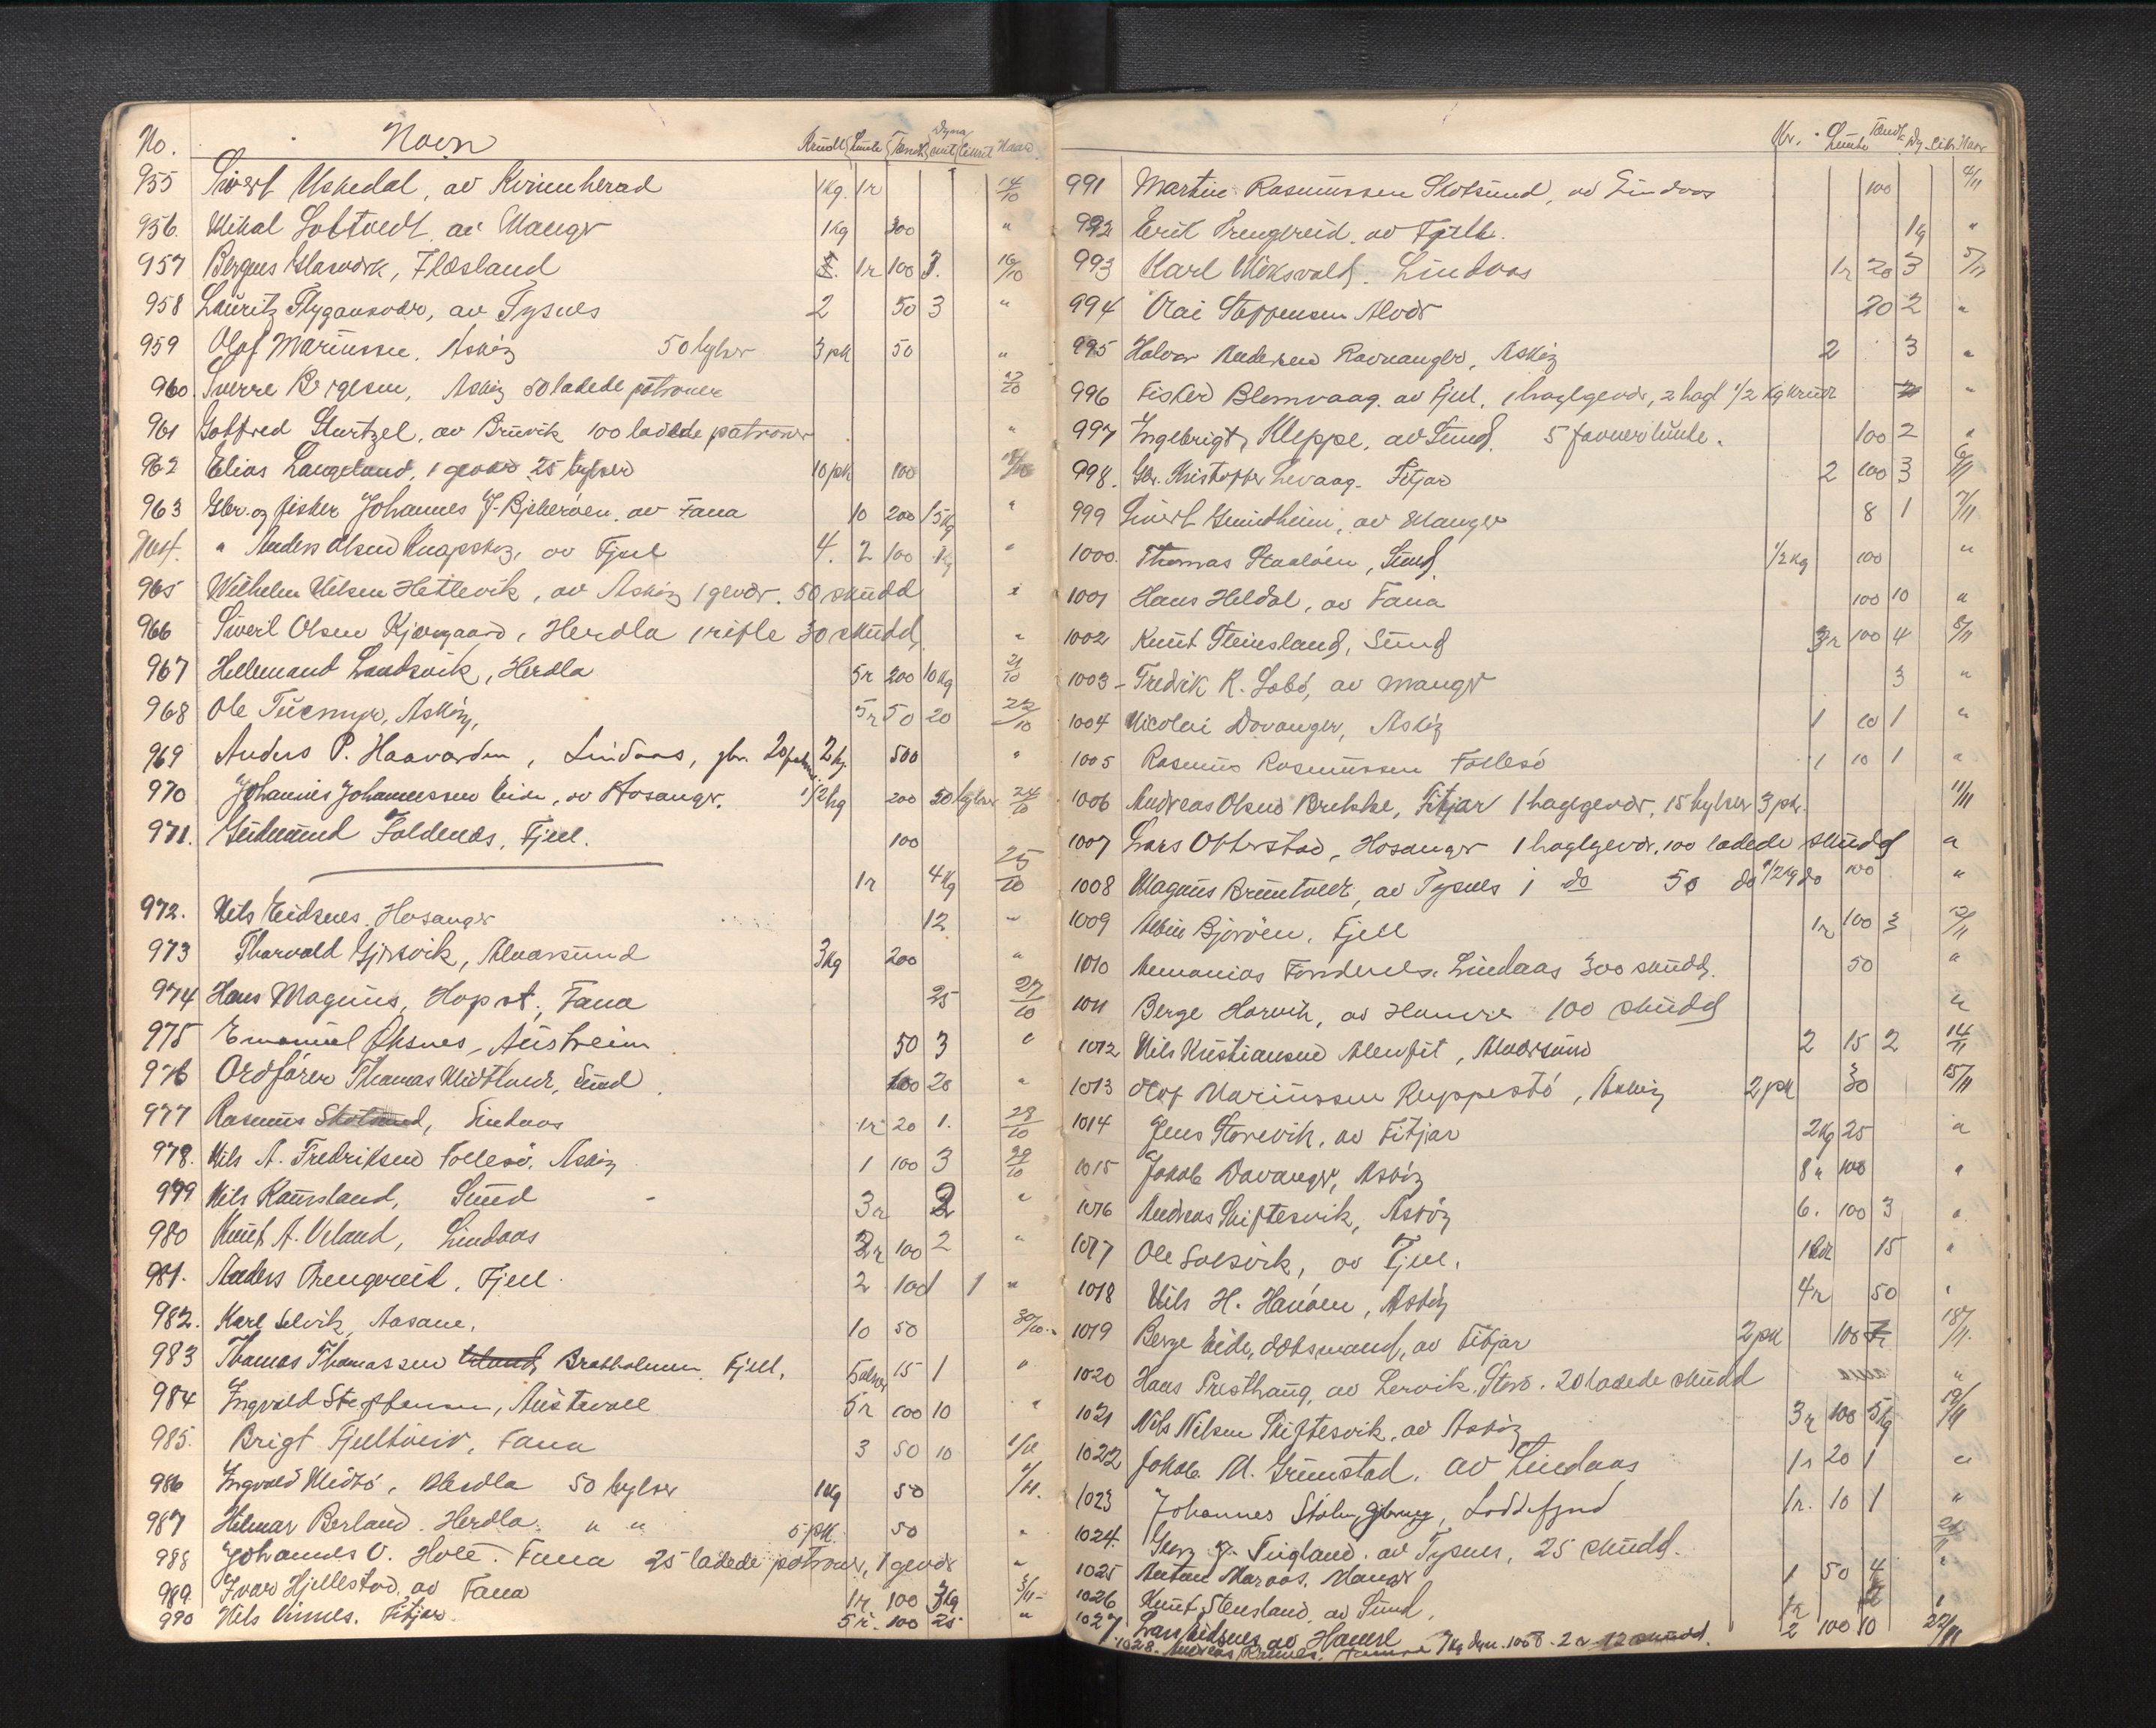 No. Navn Krudt Lunte Tændh Dyna mit Cinit Naar
955 Sivert Uskedal, av Kvinnherad 1 kg. 1 r 14/10
956. Mikal Loktvedt av Manger 1 kg 300 "
957 Bergnes Glasværk, Flæsland 1 r 100 3. 16/10
958 Lauritz Flygansvær, av Tysnes 2 50 3 "
959 Olaf Marinussen, Askøy 50 hylser 3 pk 50 "
960. Sverre Birgesen, Askøy 50 ladede patroner 17/10
961 Gotfred Sturtzel, av Bruvik 100 ladede patroner "
962 Elias Langeland, 1 gevær 25 hylser 10 pk 100
963 Gbr. og fisker Johannes J. Bjelkerøen av Fana 10 200 15 kg "
964. " Anders Olsen Knapskog, av Fjell 4. 2 100 1 kg "
965 Wilhelm Nilsen Hetlevik, av Askøy 1 gevær. 50 skudd "
966 Sivert Olsen Kjærgaard, Herdla 1 rifle 30 skudd "
967 Hellemand Landsvik, Herdla 5 r 200 10 kg 21/10
968 Ole Tuemyr, Askøy, 5 r 50 20 22/10
969 Anders P. Haavarden, Lindaas, gbr. 20 2 kg 500 "
970 Johannes Johannessen Eide, av Hosanger. 1/2 kg 200 50 hylser 24/10
971. Gudmund Foldenæs, Fjell. 100
1 r 4 kg 25/10
972. Nils Eidsnes, Hosanger 12 "
973 Thorvald Gjersvik, Alversund 3 kg 200 "
974 Hans Magnus, Hopst, Fana 25 27/10
975 Emanuel Oksnes, Austreim 50 3 "
976 Ordfører Thomas Midttveit, Sund 100 20 "
977 Rasmus Skotsund, Lindaas 1 r 20 1. 28/10
978. Nils A. Fredriksen Follesø, Askøy 1 100 3 29/10
979 Nils Kausland, Sund 3 r 2 "
980 Knut A. Veland, Lindaas 2 r 100 2 "
981. Anders Trengereid, Fjell. 2 100 1 "
982. Karl Selvik, Aasane. 10 50 30/10
983 Thomas Thomassen Bratholmen Fjell. 5 15 1 "
984 Ingvald Steffensen, Austevoll 5 r 100 10 "
985. Brigt Fjelltveit, Fana 3 50 10
986 Ingvald Midtø, Herdla 50 hylser 1 kg 50 /11.
987 Hilmar Berland. Herdla. " " 5 pk. 50 "
988 Johannes O. Hole. Fana 25 ladede patroner, 1 gevær "
989. Ivar Hjellestad, av Fana 1 r 100 3 kg 3/11
990 Nils Vinnes. Fitjar. 5 r. 100 25 "
Kr. Lunte Tændh Dy. Cin. Naar
991 Martin Rasmussen Skotsund, av Lindaas 100 4/11
992 Erik Trengereid, av Fjell. 1 kg "
993 Karl Miksvold. Lindaas 1 r 20 3 5/11
994 Olai Steffensen Alvær 20 2 "
995 Halvor Andersen Ravnanger, Askøy 2 3 "
996 Fisker Blomvaag, av Fjell, 1 haglgevær, 2 hagl 1/2 kg krudt "
997 Ingebrigt Kleppe, av Sund, 5 favner lunte. 100 2 "
998. Gbr. Kristoffer Levaag. Fitjar 2 100 3 6/11
999 Sivert Grindheim, av Manger 8 1 7/11
1000. Thomas Staaløen, Sund 1/2 kg 100 "
1001 Hans Heldal, av Fana 100 10 "
1002 Knut Steinsland, Sund 3 r 100 4 8/11
1003 - Fredrik K. Løbø, av Manger 3 "
1004 Nicolai Davanger, Askøy 1 10 1 "
1005 Rasmus Rasmussen Follesø 1 10 1 "
1006 Andreas Olsen Brekke, Fitjar 1 haglgevær, 15 hylser 3 pk. 11/11
1007 Lars Otterstad, Hosanger 1 haglgevær, 100 ladede skudd "
1008 Magnus Bruntveit, av Tysnes 1 do 50 do 1/2 kg do 100 "
1009 Albin Bjorøen, Fjell 1 r 100 3 12/11
1010 Annanias Fondenes, Lindaas 300 skudd. 50 "
1011 Berge Horvik, av Hamre 100 skudd "
1012 Nils Kristiansen Alenfit, Alversund 2 15 2 14/11
1013 Olaf Marinussen Kleppestø, Askøy 2 pk 30 15/11
1014 Jens Storevik, av Fitjar 2 kg 25 "
1015 Jakob Davanger, Askøy 8 " 100 "
1016 Andreas Skiftesvik, Askøy 6. 100 3 "
1017 Ole Solsvik, av Fjell. 15 "
1018 Nils H. Hanøen, Askøy 4 r 50 "
1019 Berge Eide, dødsmand, av Fitjar 2 pk 100 18/11.
1020 Hans Presthaug, av Lervik, Stord. 20 ladede skudd "
1021 Nils Nilsen Skiftesvik, av Askøy 3 r 100 5 kg 19/11
1022 Jakob M. Grimstad, av Lindaas 1 r 20 1 "
1023 Johannes Stølen, Loddefjord 1 r. 10 1 "
1024. J. Tingland. av Tysnes, 25 skudd.
1025 Anton Maraas. Manger 1 50 4 "
1026 Knut Stensland, av Sund. 1 r "
1027. Lars Eidsnes av Hamre 2 100 10 22/11
1028. Andreas